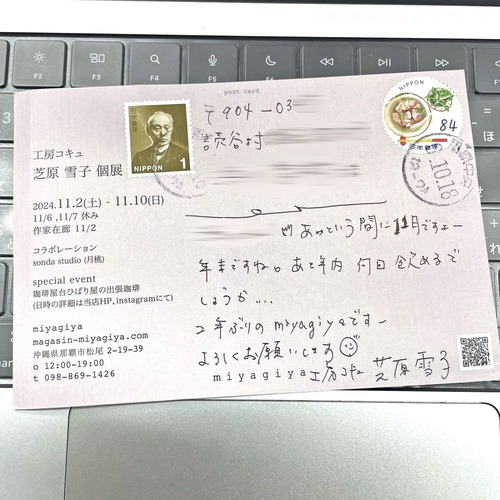 post card
工房コキュ
芝原 雪子 個展
2024.11.2(土) - 11.10(日)
11/6 ,11/7 休み
作家在廊 11/2
コラボレーション
sonda studio (月桃)
special event
珈琲屋台ひばり屋の出張珈琲
(日時の詳細は当店HP、instagramにて)
miyagiya
magasin-miyagiya.com
沖縄県那覇市松尾 2-19-39
o 12:00-19:00
t 098-869-1426
日本郵便
NIPPON
1
NIPPON
84
日本郵便
10.18
〒904-03
読谷村
あっという間に11月ですよー
年末ですね。あと年内 何回 飲めるで
しょうか...
2年ぶりのmiyagiyaですー
よろしくお願いします
miyagiya 工房コキュ 芝原雪子
F2
F3
F4
F5
F6
F7
F8
F9